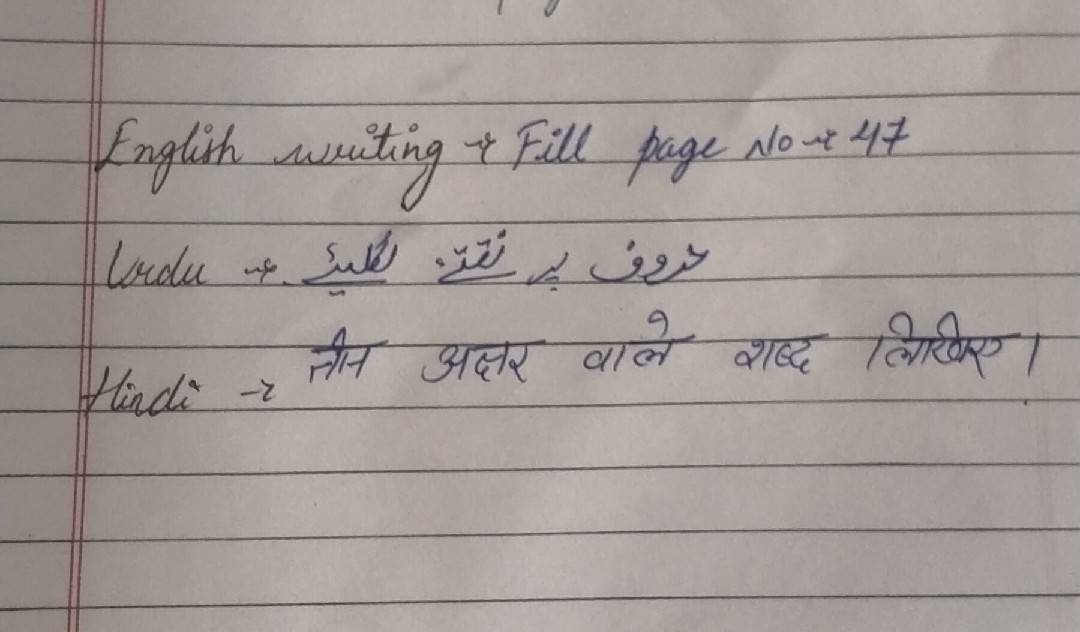 English writing → Fill page No → 47
Urdu → حروف پر نقتے لگایئے
Hindi → तीन अक्षर वाले शब्द लिखिए।